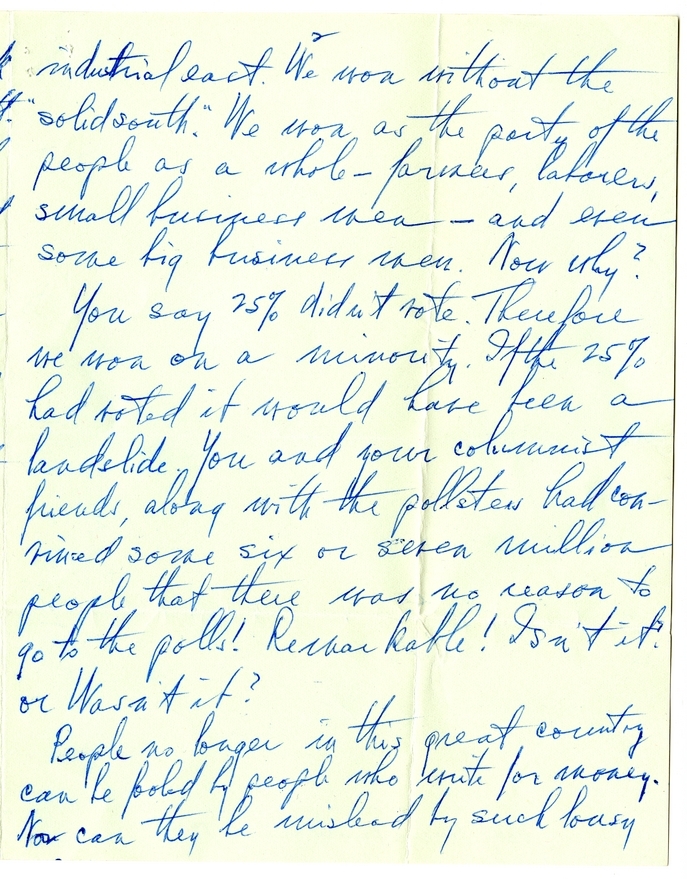 industrial east. We won without the
"solid south". We won as the party of the
people as a whole – farmers, laborers,
small business men – and even
some big business men. Now why?
You say 25% didn't vote. Therefore
we won on a minority. If the 25%
had voted it would have been a
landslide. You and your columnist
friends, along with the pollsters had con-
vinced some six or seven million
people that there was no reason to
go to the polls! Remarkable! Isn't it?
or Wasn't it?
People no longer in this great country
can be fooled by people who write for money.
Nor can they be mislead by such lousy